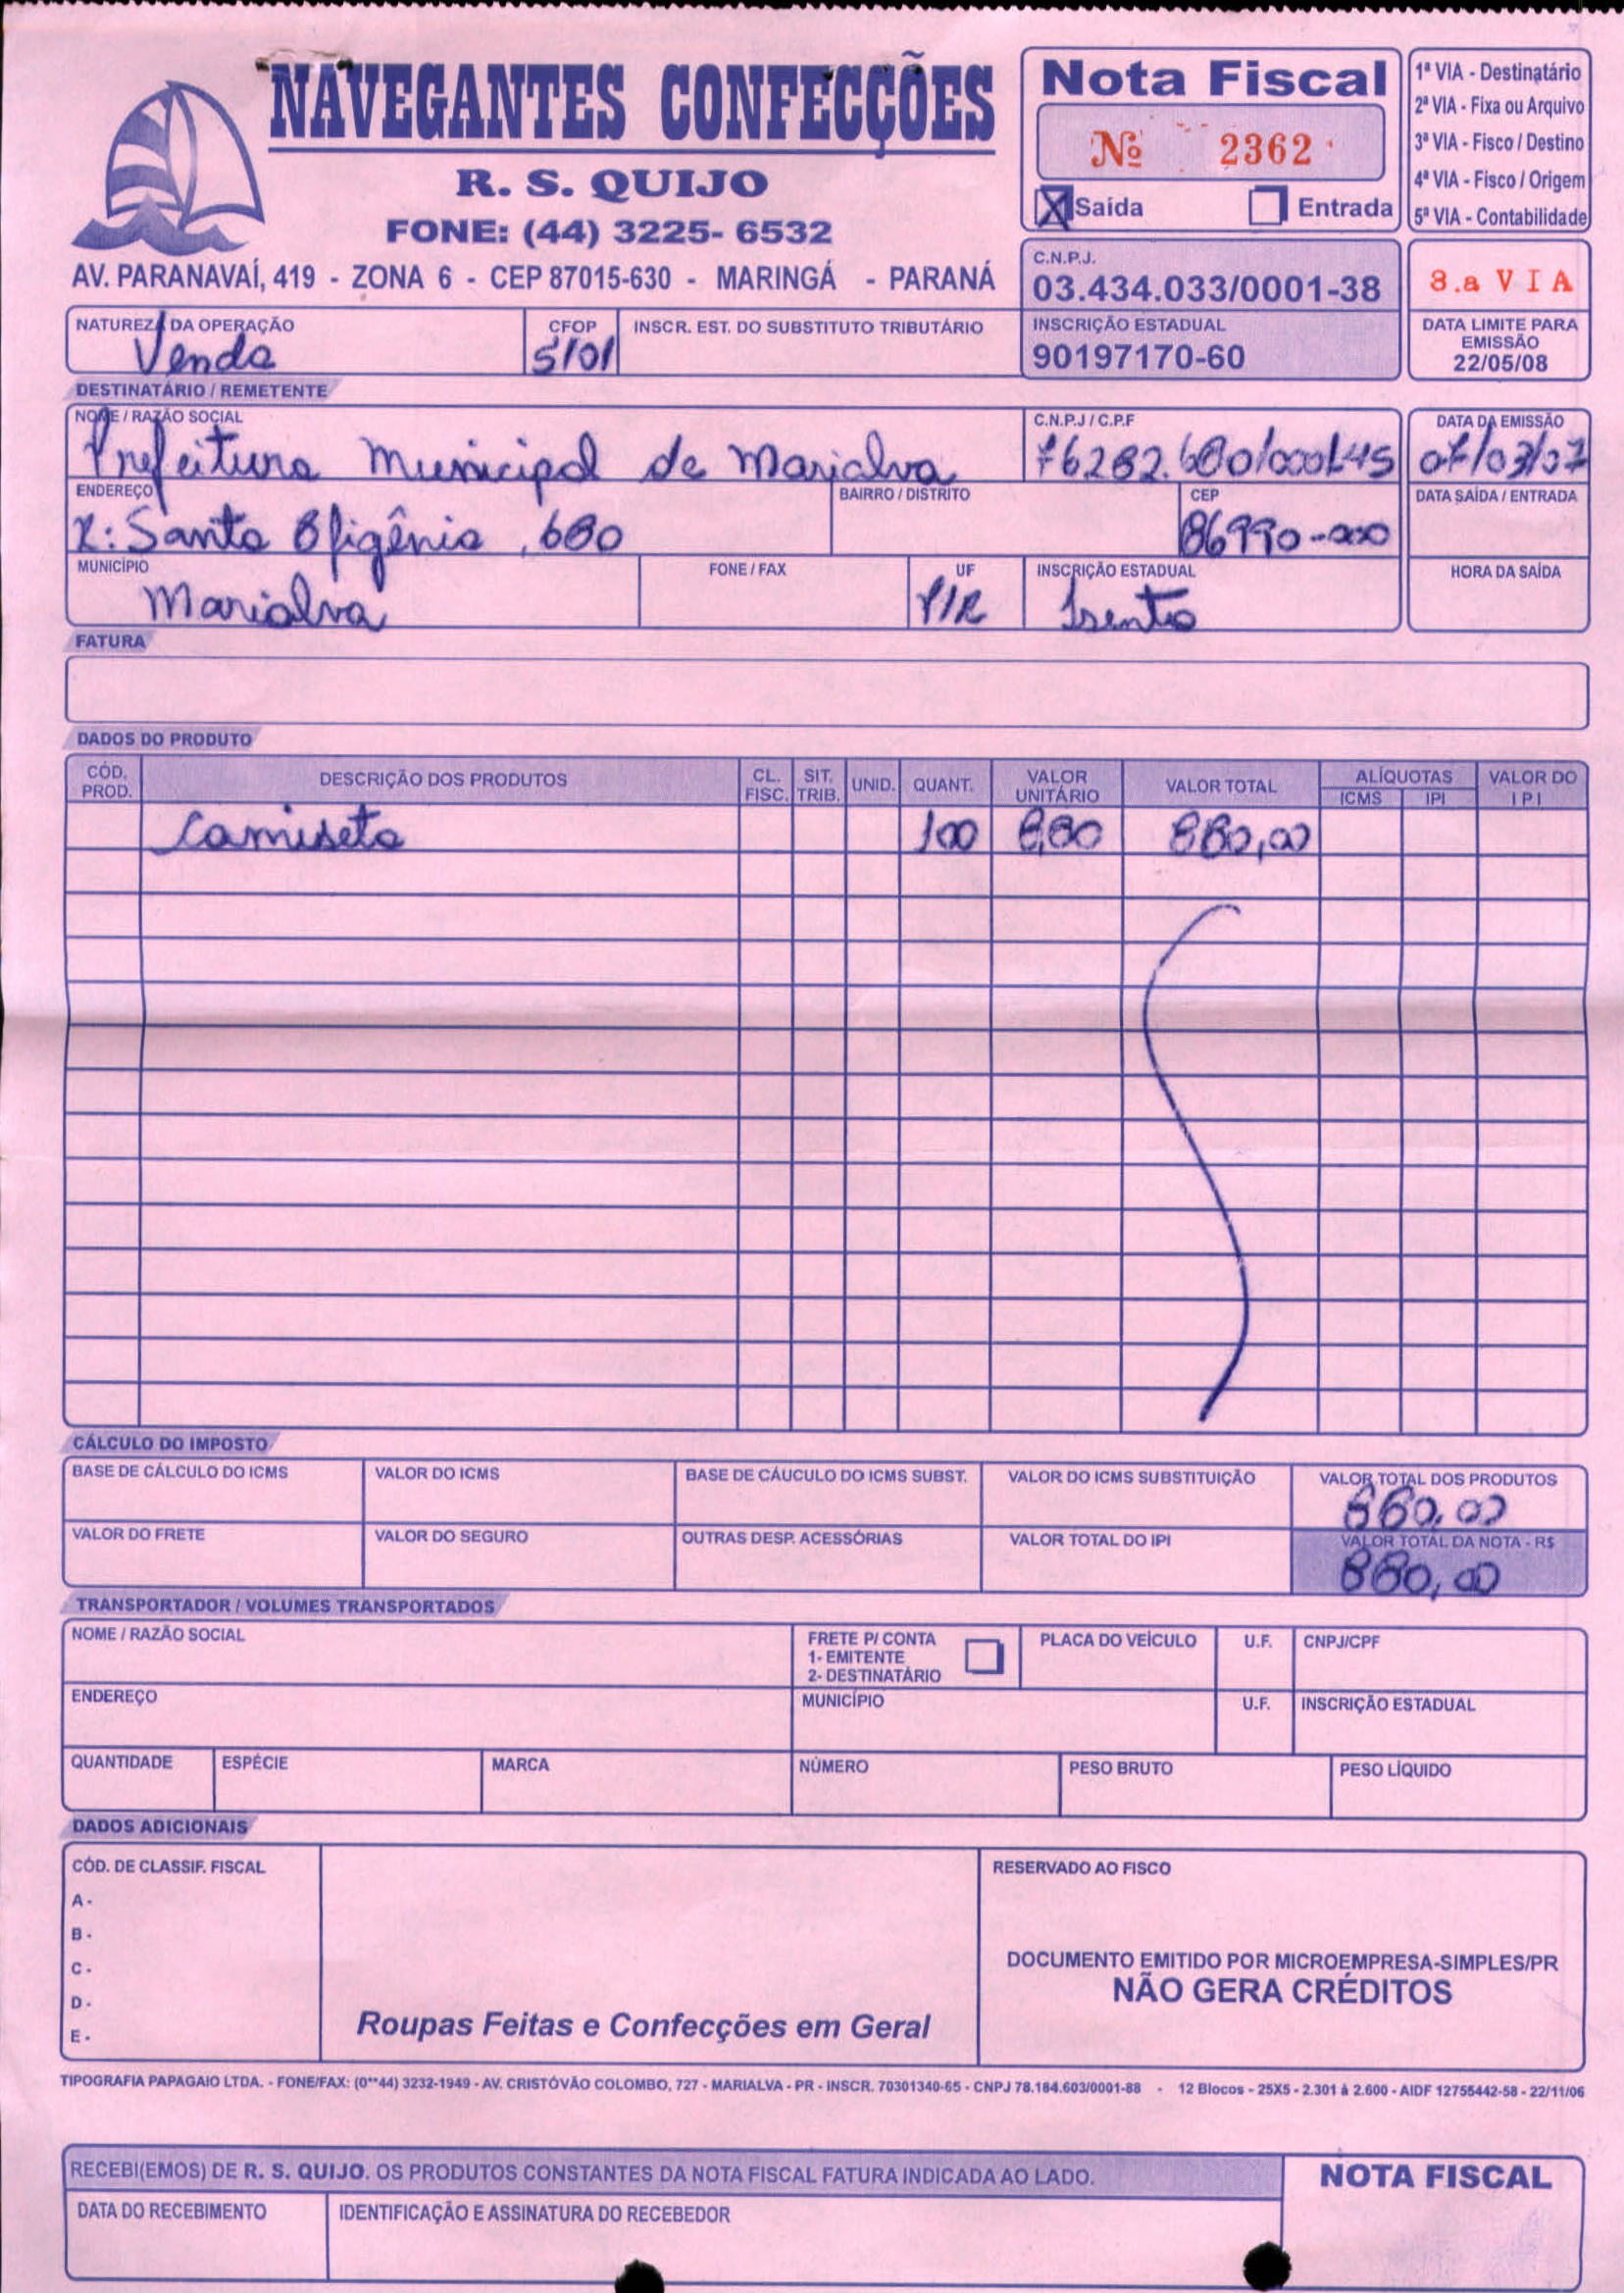 NAVEGANTES CONFECÇÕES
R. S. QUIJO
FONE: (44) 3225- 6532
AV. PARANAVAÍ, 419 - ZONA 6 - CEP 87015-630 - MARINGÁ - PARANÁ
Nota Fiscal
Nº 2362
X Saída Entrada
1ª VIA - Destinatário
2ª VIA - Fixa ou Arquivo
3ª VIA - Fisco / Destino
4ª VIA - Fisco / Origem
5ª VIA - Contabilidade
C.N.P.J.
03.434.033/0001-38
INSCRIÇÃO ESTADUAL
90197170-60
3.a VIA
DATA LIMITE PARA
EMISSÃO
22/05/08
NATUREZA DA OPERAÇÃO CFOP INSCR. EST. DO SUBSTITUTO TRIBUTÁRIO
Venda 5101
DESTINATÁRIO / REMETENTE
NOME / RAZÃO SOCIAL C.N.P.J / C.P.F DATA DA EMISSÃO
Prefeitura Municipal de Marialva 76282.680/000145 07/03/07
ENDEREÇO BAIRRO / DISTRITO CEP DATA SAÍDA / ENTRADA
R: Santa Efigênia, 680 86990-000
MUNICÍPIO FONE / FAX UF INSCRIÇÃO ESTADUAL HORA DA SAÍDA
Marialva P/R Isento
FATURA
DADOS DO PRODUTO
CÓD. PROD. DESCRIÇÃO DOS PRODUTOS CL. FISC. SIT. TRIB. UNID. QUANT. VALOR UNITÁRIO VALOR TOTAL ALÍQUOTAS ICMS IPI VALOR DO IPI
Camiseta 100 8,80 880,00
CÁLCULO DO IMPOSTO
BASE DE CÁLCULO DO ICMS VALOR DO ICMS BASE DE CÁUCULO DO ICMS SUBST. VALOR DO ICMS SUBSTITUIÇÃO VALOR TOTAL DOS PRODUTOS
880,00
VALOR DO FRETE VALOR DO SEGURO OUTRAS DESP. ACESSÓRIAS VALOR TOTAL DO IPI VALOR TOTAL DA NOTA - R$
880,00
TRANSPORTADOR / VOLUMES TRANSPORTADOS
NOME / RAZÃO SOCIAL FRETE P/ CONTA PLACA DO VEÍCULO U.F. CNPJ/CPF
1- EMITENTE
2- DESTINATÁRIO
ENDEREÇO MUNICÍPIO U.F. INSCRIÇÃO ESTADUAL
QUANTIDADE ESPÉCIE MARCA NÚMERO PESO BRUTO PESO LÍQUIDO
DADOS ADICIONAIS
CÓD. DE CLASSIF. FISCAL
A -
B -
C -
D -
E -
Roupas Feitas e Confecções em Geral
RESERVADO AO FISCO
DOCUMENTO EMITIDO POR MICROEMPRESA-SIMPLES/PR
NÃO GERA CRÉDITOS
TIPOGRAFIA PAPAGAIO LTDA. - FONE/FAX: (0**44) 3232-1949 - AV. CRISTÓVÃO COLOMBO, 727 - MARIALVA - PR - INSCR. 70301340-65 - CNPJ 78.184.603/0001-88 - 12 Blocos - 25X5 - 2.301 à 2.600 - AIDF 12755442-58 - 22/11/06
RECEBI(EMOS) DE R. S. QUIJO. OS PRODUTOS CONSTANTES DA NOTA FISCAL FATURA INDICADA AO LADO.
NOTA FISCAL
DATA DO RECEBIMENTO IDENTIFICAÇÃO E ASSINATURA DO RECEBEDOR